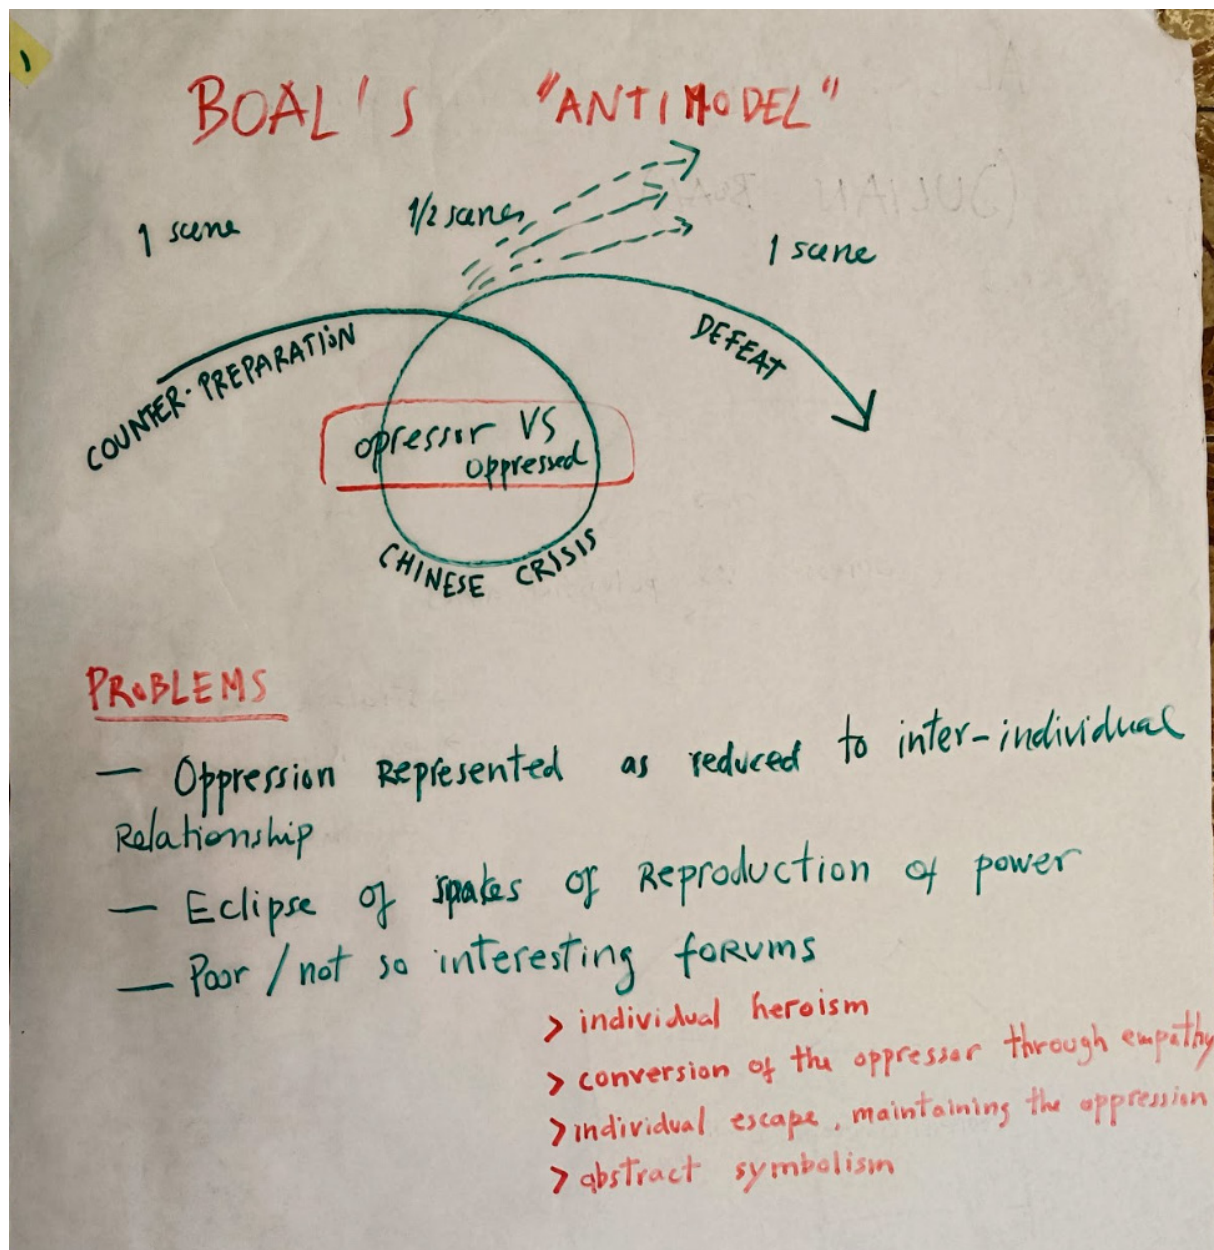 1
BOAL'S "ANTIMODEL"
1 scene
1/2 scenes
1 scene
COUNTER-PREPARATION
DEFEAT
opressor VS
oppressed
CHINESE CRISIS
PROBLEMS
— Oppression Represented as reduced to inter-individual
Relationship
— Eclipse of of Reproduction of power
— Poor / not so interesting forums
> individual heroism
> conversion of the oppressor through empathy
> individual escape, maintaining the oppression
> abstract symbolism
(JULIAN BOAL